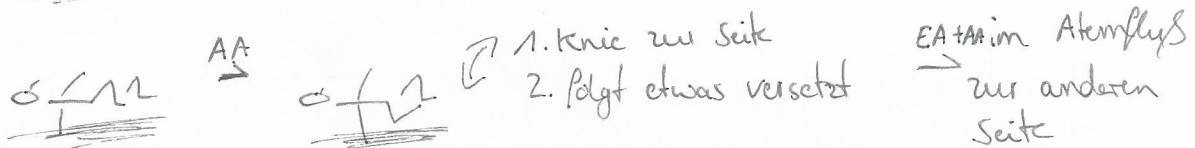 AA
1. Knie zur Seite
2. folgt etwas versetzt
EA+AA im Atemfluß
zur anderen
Seite